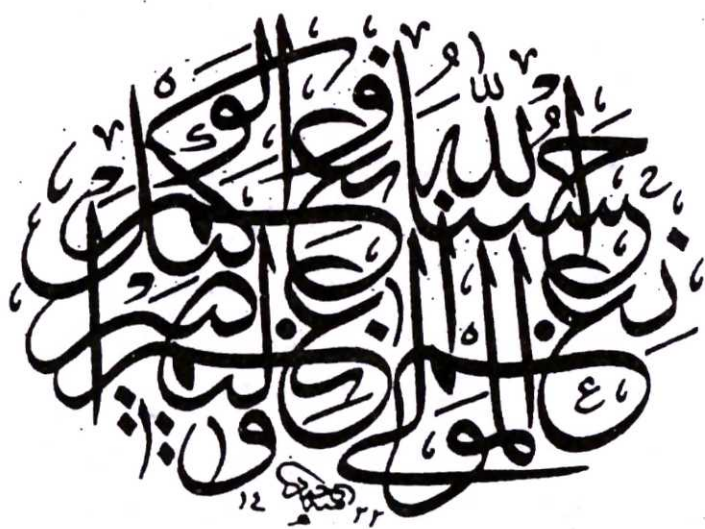 حسبنا الله ونعم الوكيل
نعم المولى ونعم النصير